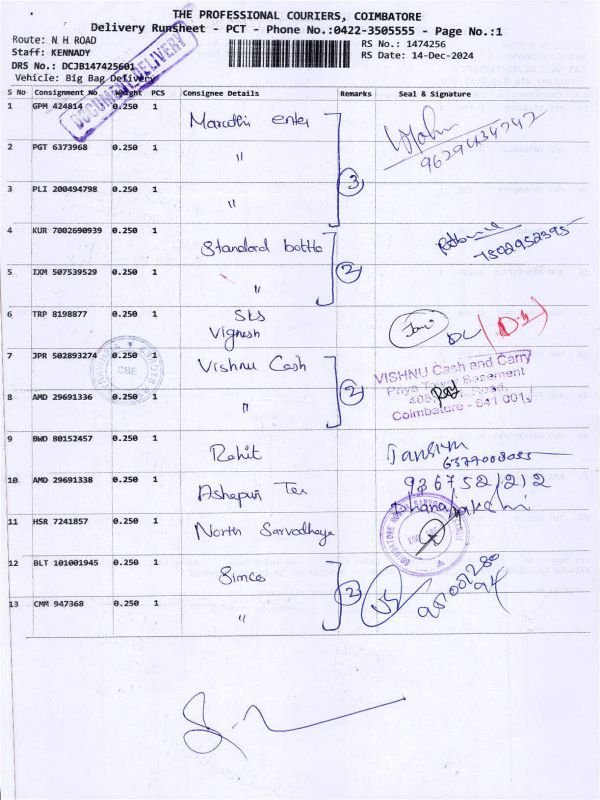 THE PROFESSIONAL COURIERS, COIMBATORE
Delivery Runsheet - PCT - Phone No.:0422-3505555 - Page No.:1
Route: N H ROAD
RS No.: 1474256
Staff: KENNADY
RS Date: 14-Dec-2024
DRS No.: DCJB147425601
Vehicle: Big Bag Delivery
DOCUMENT DELIVERY
S No Consignment No Weight PCS Consignee Details Remarks Seal & Signature
1 GPM 424814 0.250 1
2 PGT 6373968 0.250 1 "
3 PLI 200494798 0.250 1 " 3
4 KUR 7002690939 0.250 1 Standard bottle
7502952595
5 IXM 507539529 0.250 1 " 2
6 TRP 8198877 0.250 1 SKS
Vignesh
7 JPR 502893274 0.250 1 Vishnu Cash
VISHNU Cash and Carry
Basement
Coimbatore - 641 001.
CBE
8 AMD 29691336 0.250 1 " 2
9 BWD 80152457 0.250 1 Rohit
10 AMD 29691338 0.250 1 Ashapuri Tex
9367521212
Dhanalakshi
11 HSR 7241857 0.250 1 North Sarvodhaya
12 BLT 101001945 0.250 1 Simco
13 CMM 947368 0.250 1 " 2